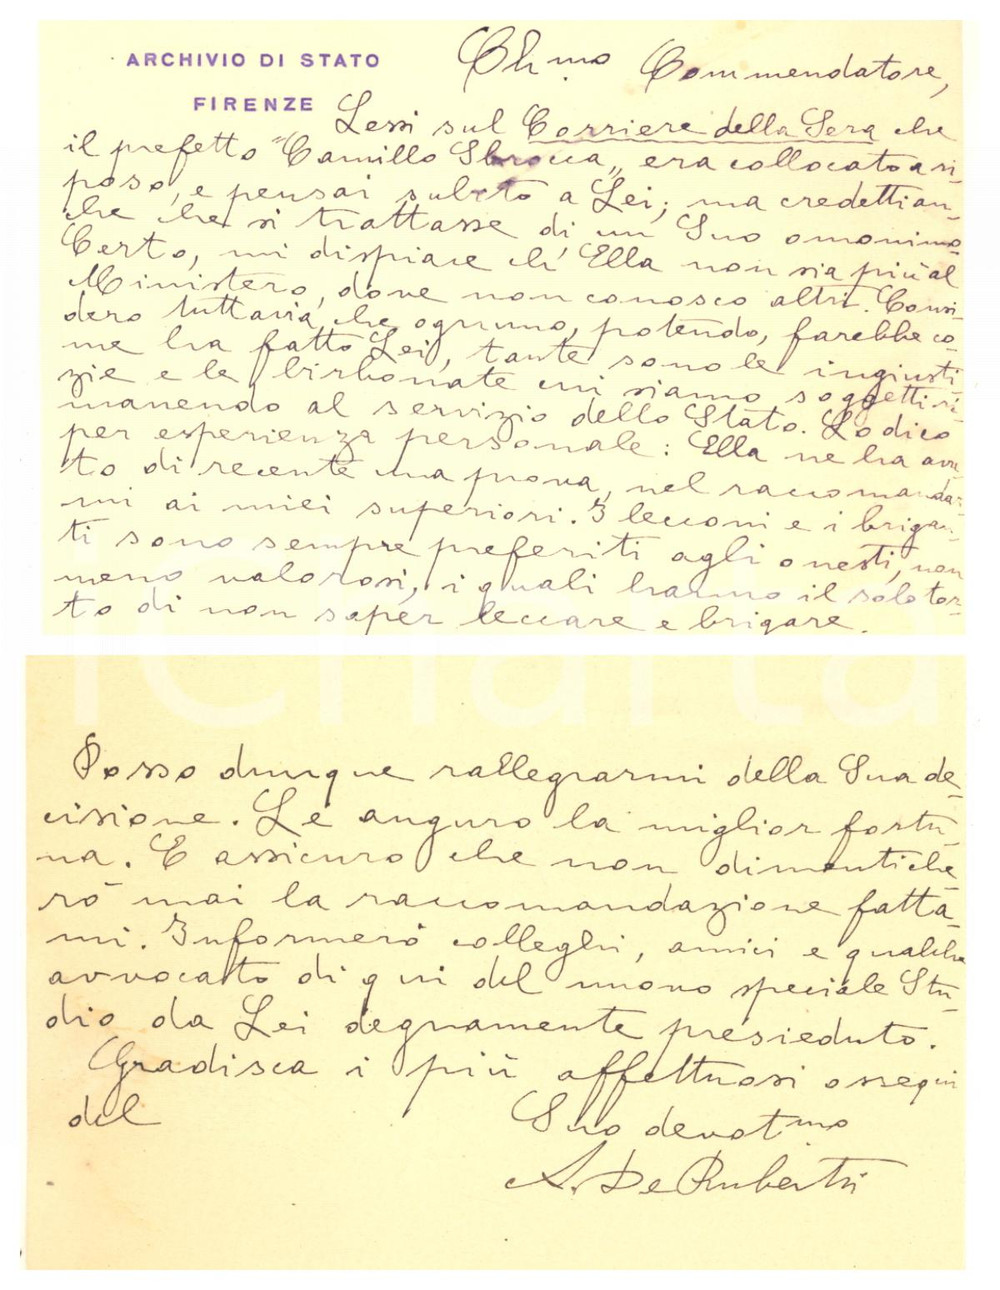 ARCHIVIO DI STATO
FIRENZE
Ch.mo Commendatore,
Lessi sul Corriere della Sera che
il prefetto "Camillo Sbrocca" era collocato a ri-
poso, e pensai subito a Lei; ma credetti an-
che che si trattasse di un Suo omonimo
Certo, mi dispiace ch'Ella non sia più al
Ministero, dove non conosco altri. Consi-
dero tuttavia che ognuno, potendo, farebbe co
me ha fatto Lei, tante sono le ingiusti-
zie e le birbonate cui siamo soggetti ri-
manendo al servizio dello Stato. Lo dico
per esperienza personale: Ella ne ha avu
to di recente una prova, nel raccomandar-
mi ai miei superiori. I lecconi e i brigan-
ti sono sempre preferiti agli onesti, non
meno valorosi, i quali hanno il solo tor-
to di non saper leccare e brigare.
Posso dunque rallegrarmi della Sua de-
cisione. Le auguro la miglior fortu-
na. E assicuro che non dimentiche-
rò mai la raccomandazione fatta-
mi. Informerò colleghi, amici e qualche
avvocato di qui del nuovo speciale Stu-
dio da Lei degnamente presieduto.
Gradisca i più affettuosi ossequi
del
Suo devot.mo
A. De Rubertis
iCharta